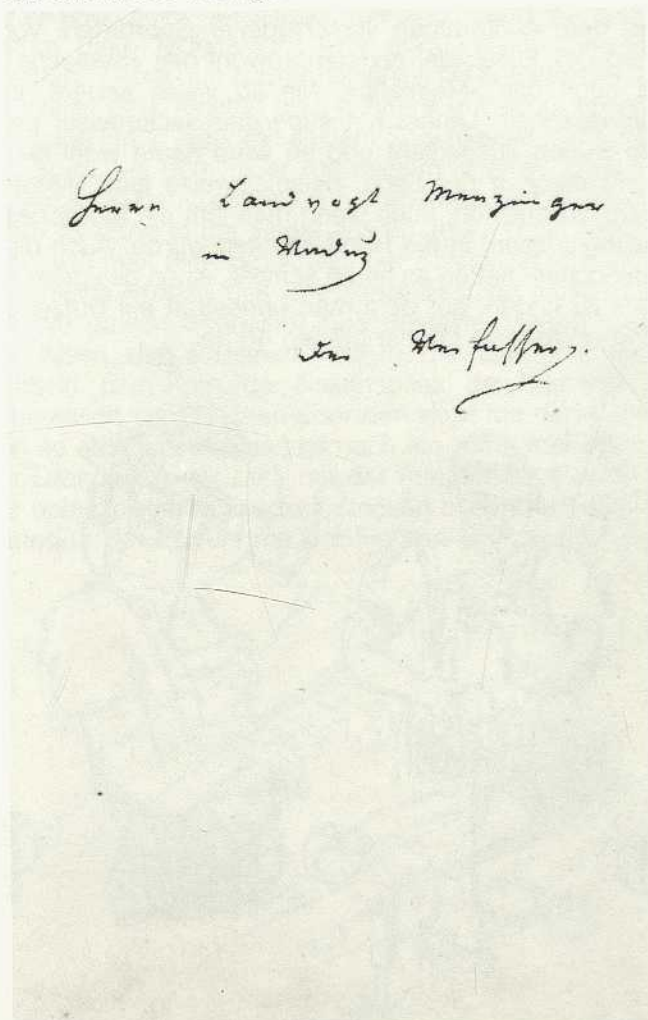 Herrn Landvogt Menzinger
in Vaduz
Der Verfasser.